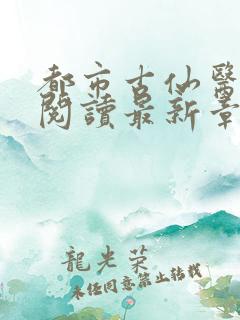 都市古仙醫
閱讀最新章
龍光榮
未经同意禁止转载